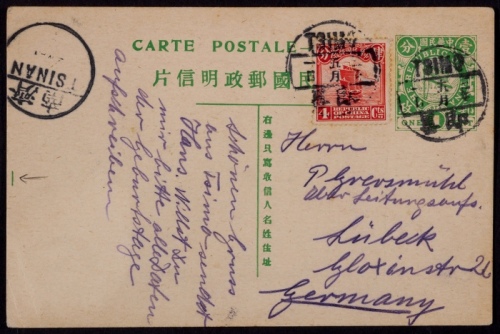 CARTE POSTALE
片信明政郵國民
TSINAN
TSIMO
TSIMO
REPUBLIC
OF CHINA
POSTAGE
4 Cts
分
分
ONE
右邊只寫收信人名姓住址
Schönen Gruss
aus Tsimo sendet
Hans. Willst Du
mir bitte alle Daten
der Geburtstage
aufschreiben
Herrn
P Grevsmühl
Ober Leitungsaufs.
Lübeck
Gloxinstr
Germany